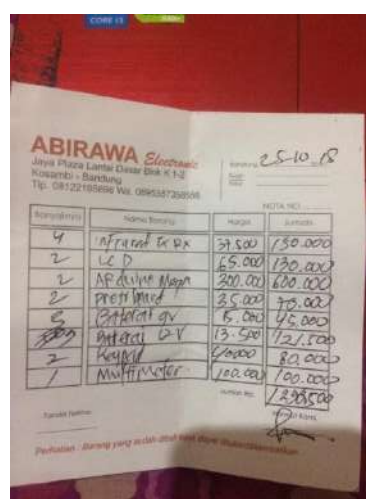 CORE i3
ABIRAWA Electronic
Jaya Plaza Lantai Dasar Blok K 1-2
Kosambi - Bandung
Bandung, 25-10-18
Kepada
NOTA NO.
Nama Barang Harga Jumlah
4 Infrared Tx Rx 37.500 150.000
2 LCD 65.000 130.000
2 Arduino Mega 300.000 600.000
2 Protoboard 35.000 70.000
Baterai 9V 45.000
Baterai 12V 13.500 121.500
2 Keypad 40.000 80.000
1 Multimeter 100.000 100.000
Jumlah Rp. 1.296.500
Tanda Terima
Hormat Kami,
Perhatian : Barang yang sudah dibeli tidak dapat